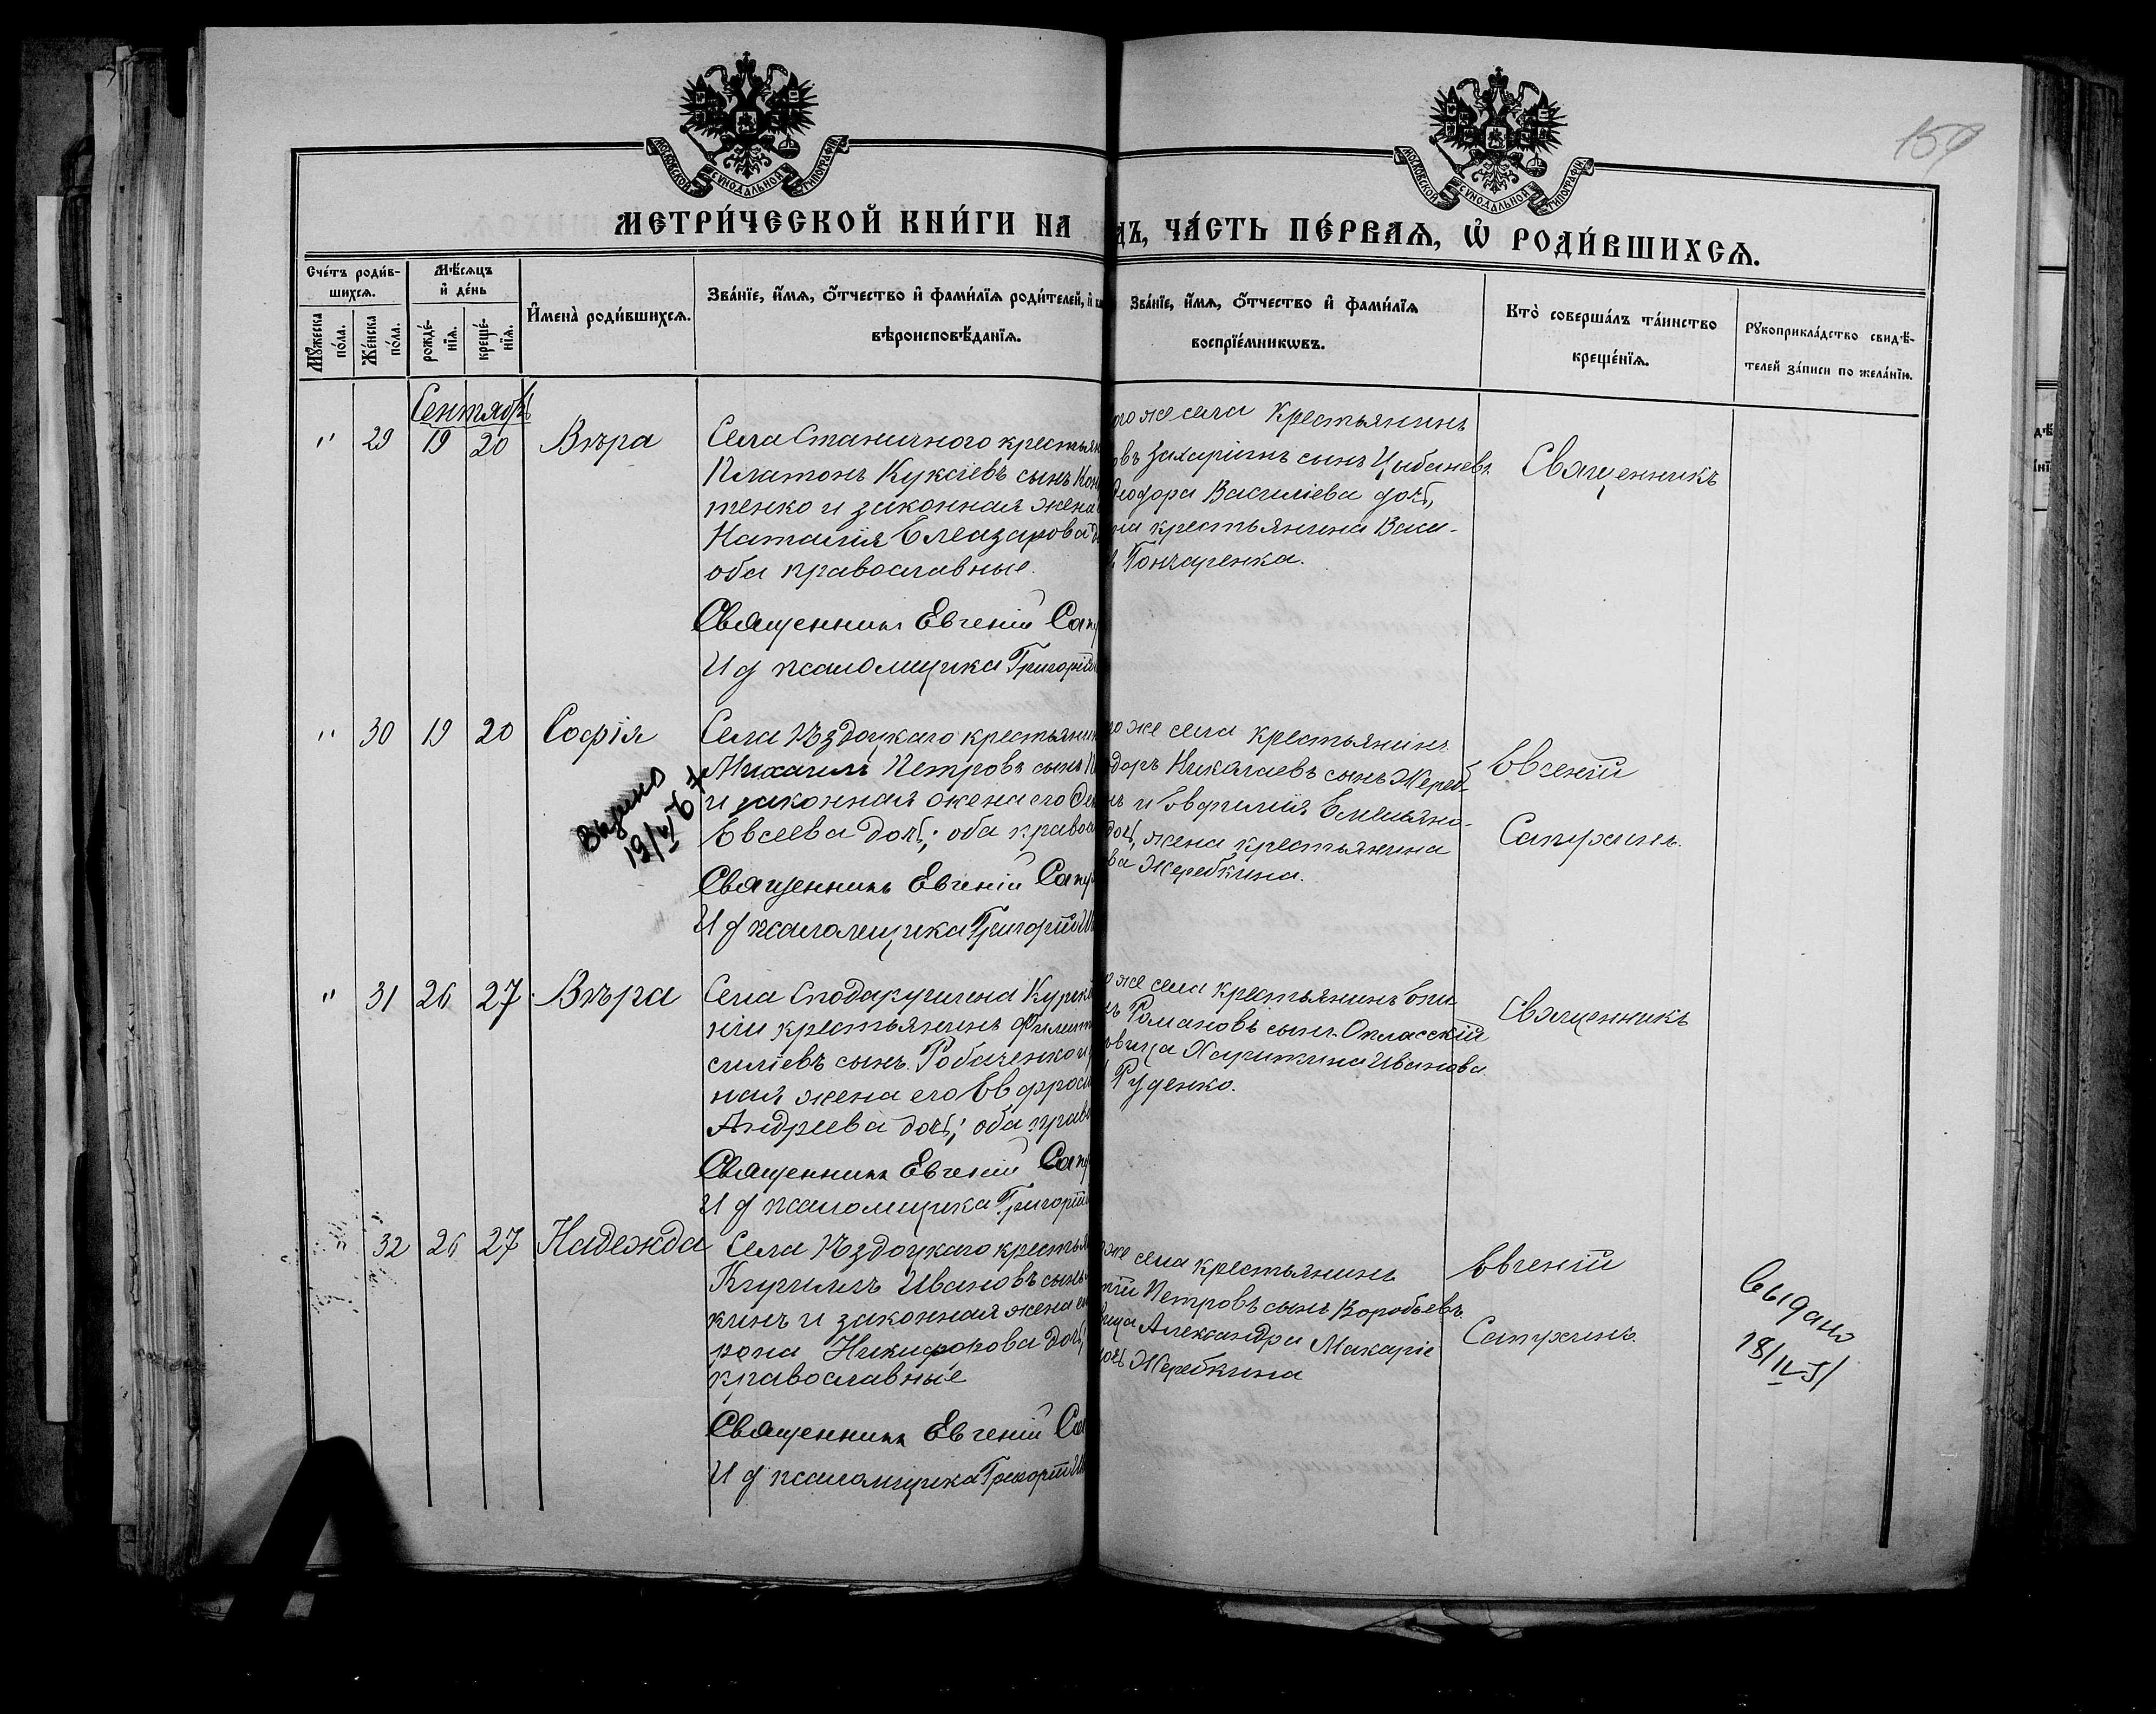 159
МОСКОВСКОЙ СѴНОДАЛЬНОЙ ТИПОГРАФІИ
МОСКОВСКОЙ СѴНОДАЛЬНОЙ ТИПОГРАФІИ
МЕТРИ́ЧЕСКОЙ КНИ́ГИ НА
ДЪ, ЧА́СТЬ ПЕ́РВАѦ, Ѡ҆ РОДИ́ВШИХСѦ.
Сче́тъ роди́в-
шихсѧ.
Мꙋ́жеска
по́ла.
Же́нска
по́ла.
Мѣ́сѧцъ
и҆ де́нь
рожде́-
нїѧ.
креще́-
нїѧ.
И҆мена̀ роди́вшихсѧ.
Зва́нїе, и҆́мѧ, ѻ҆́тчество и҆ фами́лїѧ роди́телей, и҆
вѣроисповѣ́данїѧ.
Зва́нїе, и҆́мѧ, ѻ҆́тчество и҆ фами́лїѧ
воспрїе́мникѡвъ.
Кто̀ соверша́лъ та́инство
креще́нїѧ.
Рꙋкоприкла́дство свидѣ́-
телей за́писи по жела́нїю.
Сентябрь
" 29 19 20 Вѣра
Села Станичного крестьян
Платонъ сынъ Кон
тенко и законная жена
Наталія Елеазарова
оба православные.
Священникъ Евгеній Сапр
И д псаломщика Григорій
ого же села крестьянинъ
овъ Захаріинъ сынъ Цыбаневъ
Ѳеодора Василіева дочь,
на крестьянина Васи-
Гончаренка.
Священникъ
" 30 19 20 Софія
Села Нздоцкаго крестьянин
Михаилъ Петровъ сынъ
и законная жена его
Евсеева дочь; оба право
Священникъ Евгеній Сапр
И д псаломщика Григорій
Выдано
19/VI 67
о же села крестьянинъ
доръ Николаевъ сынъ Жереб-
нъ и Евфимія Емельяно-
дочь, жена крестьянина
ва Жеребкина.
Евгеній
Сапрхинъ.
" 31 26 27 Вѣра
Села Сподарюшина Курск
ніи крестьянинъ Филипп
силіевъ сынъ Робаченко и
ная жена его Евфрос
Андреева дочь; оба прав
Священникъ Евгеній Сапр
И д псаломщика Григорій
о же села крестьянинъ
нъ Романовъ сынъ
овица Харитина Иванова
Руденко.
Священникъ
" 32 26 27 Надежда
Села Нздоцкаго крестья
Кириллъ Ивановъ сынъ
кинъ и законная жена е
рона Никифорова дочь,
православные
Священникъ Евгеній Са
И д псаломщика Григорій
же села крестьянинъ
тій Петровъ сынъ Воробьевъ
вица Александра Макаріе
дочь Жеребкина
Евгеній
Сапрхинъ.
выдано
18/IV-51